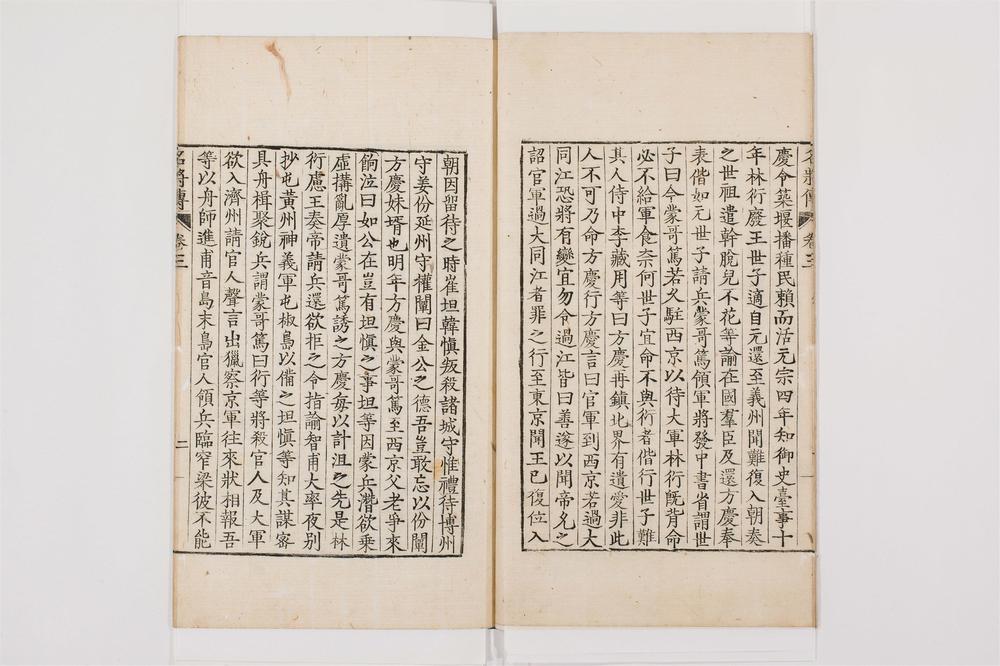 慶令築堰播種民賴而活元宗四年知御史臺事十
年林衍廢王世子適自元還至義州聞難復入朝奏
之世祖遣斡脫兒不花等諭在國羣臣及還方慶奉
表偕如元世子請兵蒙哥篤領軍將發中書省謂世
子曰今蒙哥篤若久駐西京以待大軍林衍旣背命
必不給軍食奈何世子宜命不與衍者偕行世子難
其人侍中李藏用等曰方慶再鎭北界有遺愛非此
人不可乃命方慶行方慶言曰官軍到西京若過大
同江恐將有變宜勿令過江皆曰善遂以聞帝允之
詔官軍過大同江者罪之行至東京聞王已復位入
朝因留待之時崔坦韓愼叛殺諸城守惟禮待博州
守姜份延州守權闡曰金公之德吾豈敢忘以份闡
方慶妹壻也明年方慶與蒙哥篤至西京父老爭來
餉泣曰如公在豈有坦愼之事坦等因蒙兵潛欲乘
虛搆亂厚遺蒙哥篤誘之方慶每以計沮之先是林
衍慮王奏帝請兵還欲拒之令指諭智甫大率夜別
抄屯黃州神義軍屯椒島以備之坦愼等知其謀密
具舟楫聚銳兵謂蒙哥篤曰衍等將殺官人及大軍
欲入濟州請官人聲言出獵察京軍往來狀相報吾
等以舟師進甫音島末島官人領兵臨窄梁彼不能
名將傳
卷三
二